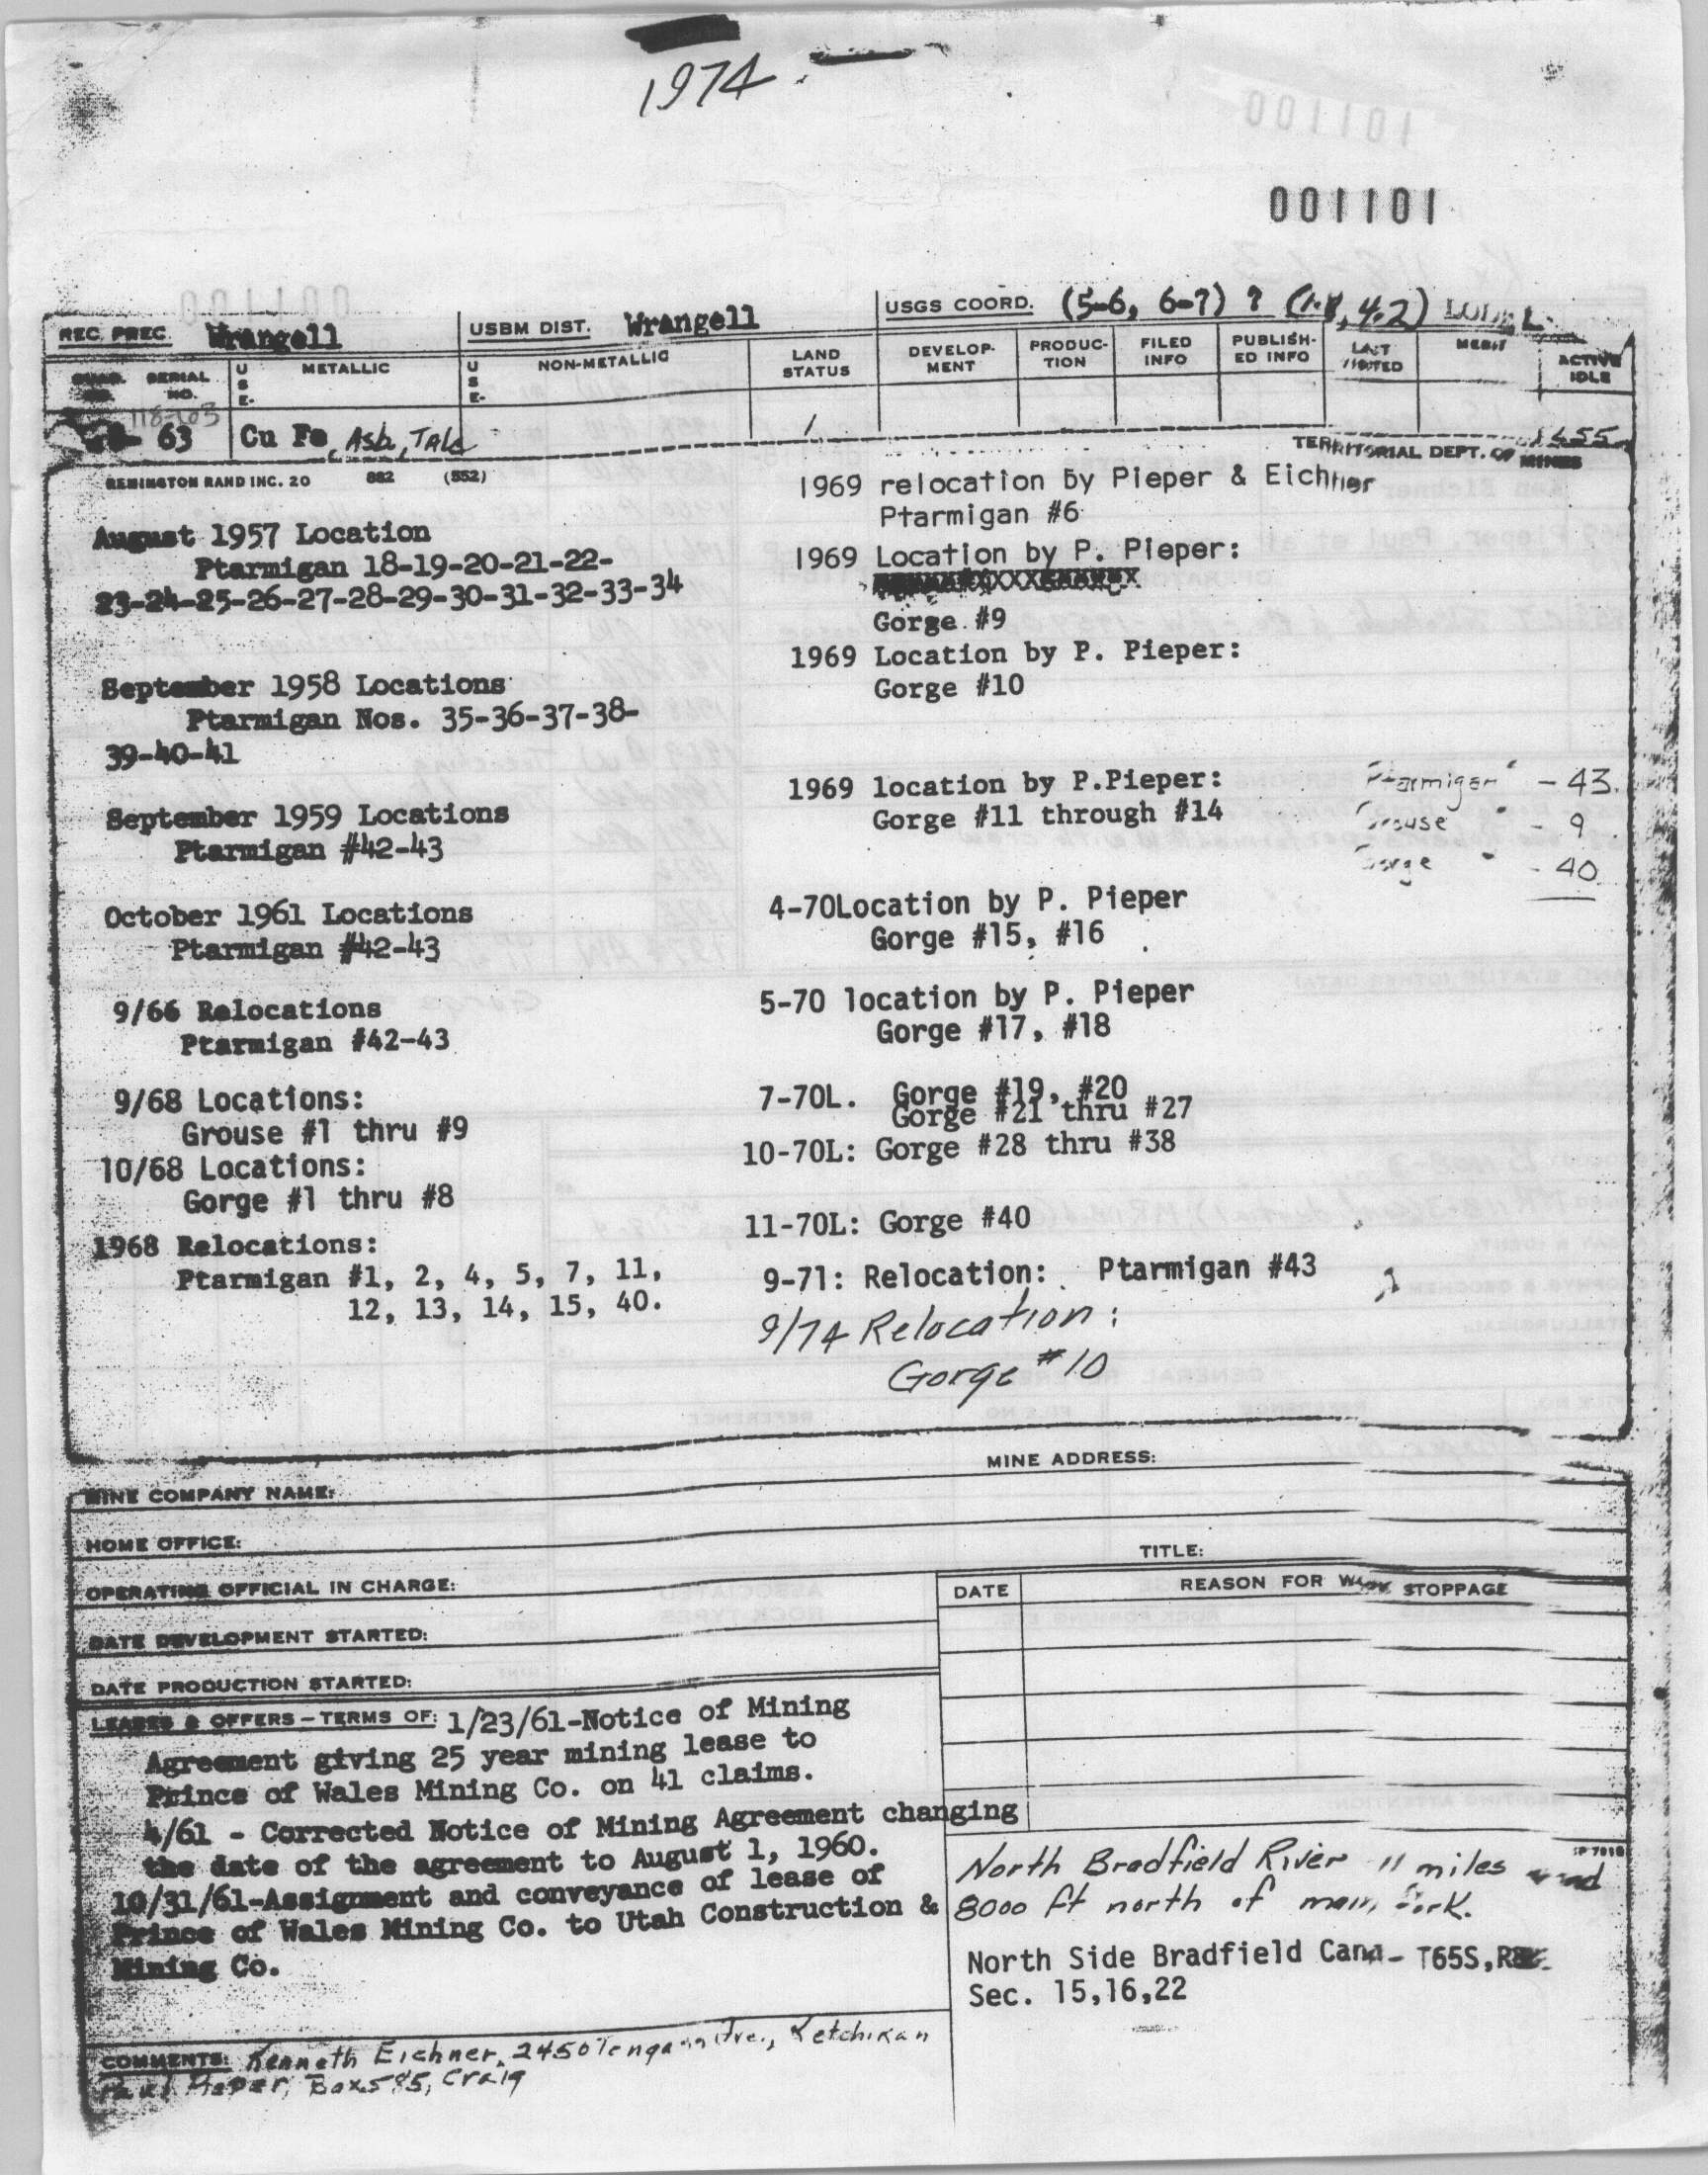 1974
001101
REC. PREC. Wrangell
USBM DIST. Wrangell
USGS COORD. (5-6, 6-7) ? (1.8, 4.2)
SERIAL NO.
USE-
METALLIC
USE-
NON-METALLIC
LAND STATUS
DEVELOP-MENT
PRODUC-TION
FILED INFO
PUBLISH-ED INFO
LAST VISITED
MERIT
ACTIVE IDLE
118-103
63
Cu Fe, Asb, Talc
TERRITORIAL DEPT. OF MINES
REMINGTON RAND INC. 20 882 (552)
August 1957 Location
Ptarmigan 18-19-20-21-22-
23-24-25-26-27-28-29-30-31-32-33-34
September 1958 Locations
Ptarmigan Nos. 35-36-37-38-
39-40-41
September 1959 Locations
Ptarmigan #42-43
October 1961 Locations
Ptarmigan #42-43
9/66 Relocations
Ptarmigan #42-43
9/68 Locations:
Grouse #1 thru #9
10/68 Locations:
Gorge #1 thru #8
1968 Relocations:
Ptarmigan #1, 2, 4, 5, 7, 11,
12, 13, 14, 15, 40.
1969 relocation by Pieper & Eichner
Ptarmigan #6
1969 Location by P. Pieper:
Gorge #9
1969 Location by P. Pieper:
Gorge #10
1969 location by P.Pieper:
Gorge #11 through #14
Ptarmigan " - 43
Grouse " - 9
Gorge " - 40
4-70Location by P. Pieper
Gorge #15, #16
5-70 location by P. Pieper
Gorge #17, #18
7-70L. Gorge #19, #20
Gorge #21 thru #27
10-70L: Gorge #28 thru #38
11-70L: Gorge #40
9-71: Relocation: Ptarmigan #43
9/74 Relocation:
Gorge #10
MINE ADDRESS:
MINE COMPANY NAME:
HOME OFFICE:
TITLE:
OPERATING OFFICIAL IN CHARGE:
DATE
REASON FOR WORK STOPPAGE
DATE DEVELOPMENT STARTED:
DATE PRODUCTION STARTED:
LEASES & OFFERS - TERMS OF: 1/23/61-Notice of Mining
Agreement giving 25 year mining lease to
Prince of Wales Mining Co. on 41 claims.
4/61 - Corrected Notice of Mining Agreement changing
the date of the agreement to August 1, 1960.
10/31/61-Assignment and conveyance of lease of
Prince of Wales Mining Co. to Utah Construction &
Mining Co.
North Bradfield River 11 miles and
8000 ft north of main fork.
North Side Bradfield Cana- T65S,
Sec. 15,16,22
COMMENTS: Kenneth Eichner, 2450 Tongass Ave., Ketchikan
Paul Pieper, Box 585, Craig